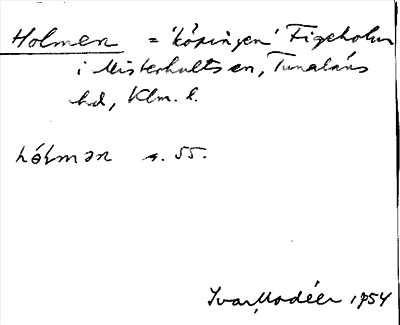 Holmen = 'köpingen' Figeholm
i Misterhults sn, Tunaläns
hd, Klm. l.
hólmən s. 55.
Ivar Modéer 1954